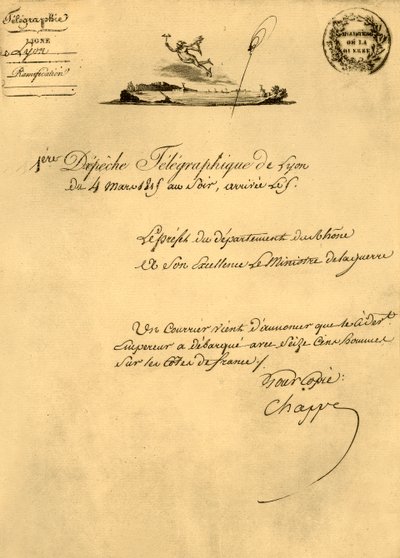 Télégraphie
LIGNE
de Lyon
Ramification
MINISTERE
DE LA
GUERRE
1ère Dépêche Télégraphique de Lyon
du 4 Mars 1815 au Soir, arrivée le 5.
Le préfet du département du Rhône
A Son Excellence Le Ministre de la guerre
Un Courrier vient d'annoncer que le
Empereur a débarqué avec Seize Cens hommes
Sur les Côtes de france /.
Pour Copie :
Chappe